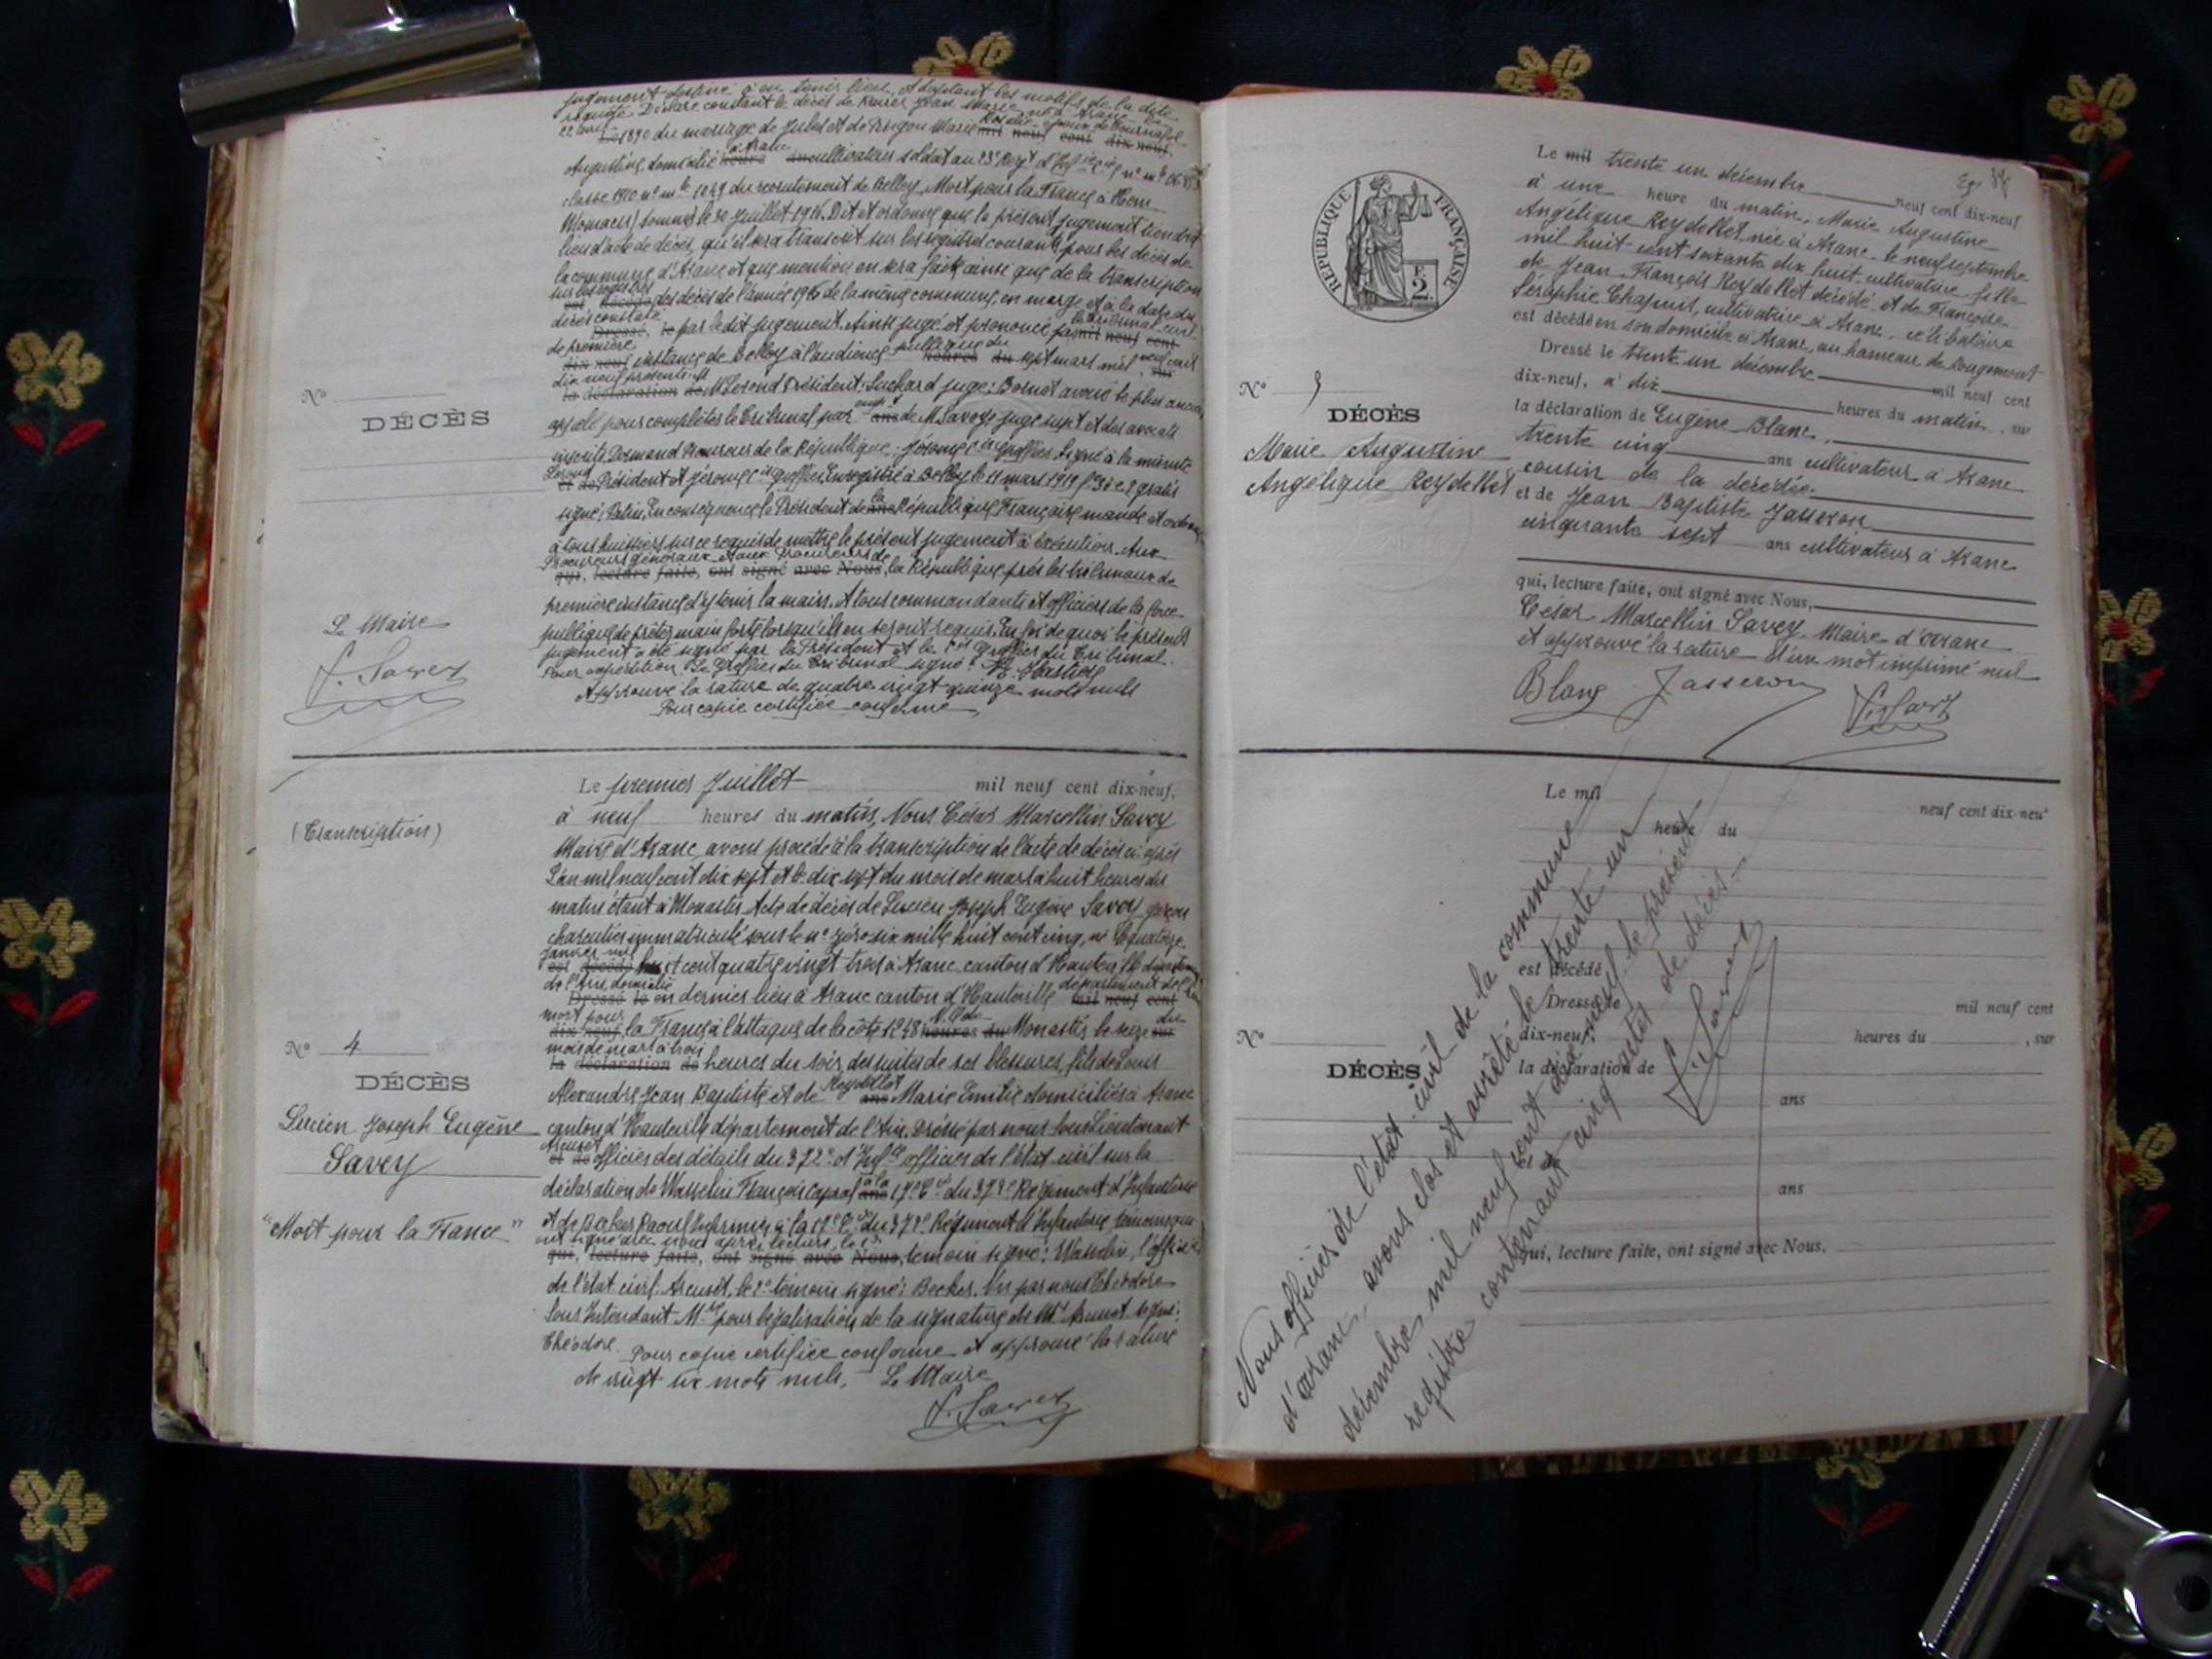 jugement destiné à en tenir lieu, Adoptant les motifs de la dite
requête Déclare constant le décès de Jean Marie né à Aranc le
22 1890 du mariage de Jules et de Marie mil neuf cent dix-neuf.
Augustine, domicilié à Aranc heure du cultivateur soldat au 23e Regt d'Infie
classe 1910 no mle 1049 du recrutement de Belley, Mort pour la France à Hem
Monacu (somme) le 30 Juillet 1916. Dit et ordonne que le présent jugement tiendra
lieu d'acte de décès, qu'il sera transcrit sur les registres courants pour les décès de
la commune d'Aranc et que mention en sera faite ainsi que de la transcription
sur les registres
est décédé des décès de l'année 1916 de la même commune, en marge et à la date du
décès constaté
Dressé, le par le dit jugement. Ainsi jugé et prononcé par le tribunal civil mil neuf cent
de première
dix neuf instance de Belley à l'audience publique du heures du sept mars mil neuf cent sur
dix neuf présents: M
la déclaration de M. président: Luchard juge; Bornet avoué le plus ancien
appelé pour compléter le Tribunal par ans de M. Savoye juge supt et des avocats
inscrits, Dormand Procureur de la République; Jérome Cis Greffier. Signé à la minute
et de Président et Jérome Cis Greffier. Enregistré à Belley le 11 mars 1919
signé: Patin. En conséquence le Président de la ans République Française mande et ordonne
à tous huissiers sur ce requis de mettre le présent jugement à exécution. Aux
Procureurs généraux et aux Procureurs de
qui, lecture faite, ont signé avec Nous, la République près les tribunaux de
première instance d'y tenir la main. A tous commandants et officiers de la force
publique de prêter main forte lorsqu'ils en seront requis. En foi de quoi le présent
jugement a été signé par le Président et le Cis Greffier du Tribunal.
Pour expédition, Le Greffier du Tribunal signé:
Approuvé la rature de quatre vingt quinze mots nuls
Pour copie certifiée conforme,
No
DÉCÈS
Le Maire
Savey
Le premier Juillet mil neuf cent dix-neuf,
à neuf heures du matin, Nous César Marcellin Savey
(Transcription)
Maire d'Aranc, avons procédé à la transcription de l'acte de décès ci après
L'an mil neuf cent dix sept et le dix sept du mois de mars à huit heures du
matin étant à Monastir Acte de décès de Lucien Joseph Eugène Savey garçon
charcutier immatriculé sous le no zéro six mille huit cent cinq, né le quatorze
janvier mil
est décédé huit cent quatre vingt trois à Aranc canton d'Hauteville département
de l'Ain, domicilié
Dressé le en dernier lieu à Aranc canton d'Hauteville département de l'Ain mil neuf cent
mort pour
dix neuf, la France à l'attaque de la côte 1248 N.O de heures du Monastir le seize du sur
mois de mars à trois
la déclaration de heures du soir, des suites de ses blessures, fils de Louis
Alexandre Jean Baptiste et de Reydellet ans Marie Emilie domiciliés à Aranc
canton d'Hauteville département de l'Ain. Dressé par nous sous Lieutenant
et de officier des détails du 372e d'Infie officier de l'état civil sur la
déclaration de Wasselin François caporal à la ans 17e Cie du 372e Régiment d'Infanterie
et de Becker Raoul Infirmier à la 17e Cie du 372e Régiment d'Infanterie témoins qui
ont signé avec nous après lecture, le 1er
qui, lecture faite, ont signé avec Nous, témoin signé: Wasselin, l'officier
de l'état civil, le 2e témoin signé: Becker. Vu par nous Théodore
Sous Intendant Mre pour légalisation de la signature de Mr signé:
Théodore. Pour copie certifiée conforme et approuvé la rature
de vingt six mots nuls, Le Maire
Savey
No 4
DÉCÈS
Lucien Joseph Eugène
Savey
"Mort pour la France"
RÉPUBLIQUE FRANÇAISE
2
Le mil trente un décembre neuf cent dix-neuf
à une heure du matin, Marie Augustine
Angélique Reydellet née à Aranc le neuf septembre
mil huit cent soixante dix huit, cultivatrice fille
de Jean François Reydellet décédé et de Françoise
Séraphie Chapuis, cultivatrice à Aranc, célibataire
est décédé en son domicile à Aranc, au hameau de Rougemont
Dressé le trente un décembre mil neuf cent
dix-neuf, à dix heures du matin, sur
la déclaration de Eugène Blanc,
trente cinq ans cultivateur à Aranc
cousin de la décédée.
et de Jean Baptiste Jasseron
cinquante sept ans cultivateur à Aranc
qui, lecture faite, ont signé avec Nous,
César Marcellin Savey Maire d'Aranc
et approuvé la rature d'un mot imprimé nul
Blanc Jasseron Savey
No
DÉCÈS
Marie Augustine
Angélique Reydellet
Le mil neuf cent dix-neuf
heure du
est décédé
Dressé le mil neuf cent
dix-neuf, heures du , sur
la déclaration de
ans
et de
ans
qui, lecture faite, ont signé avec Nous,
No
DÉCÈS
Nous officier de l'état civil de la commune
d'Aranc, avons clos et arrêté le trente un
décembre mil neuf cent dix neuf le présent
registre contenant cinq actes de décès.
Savey